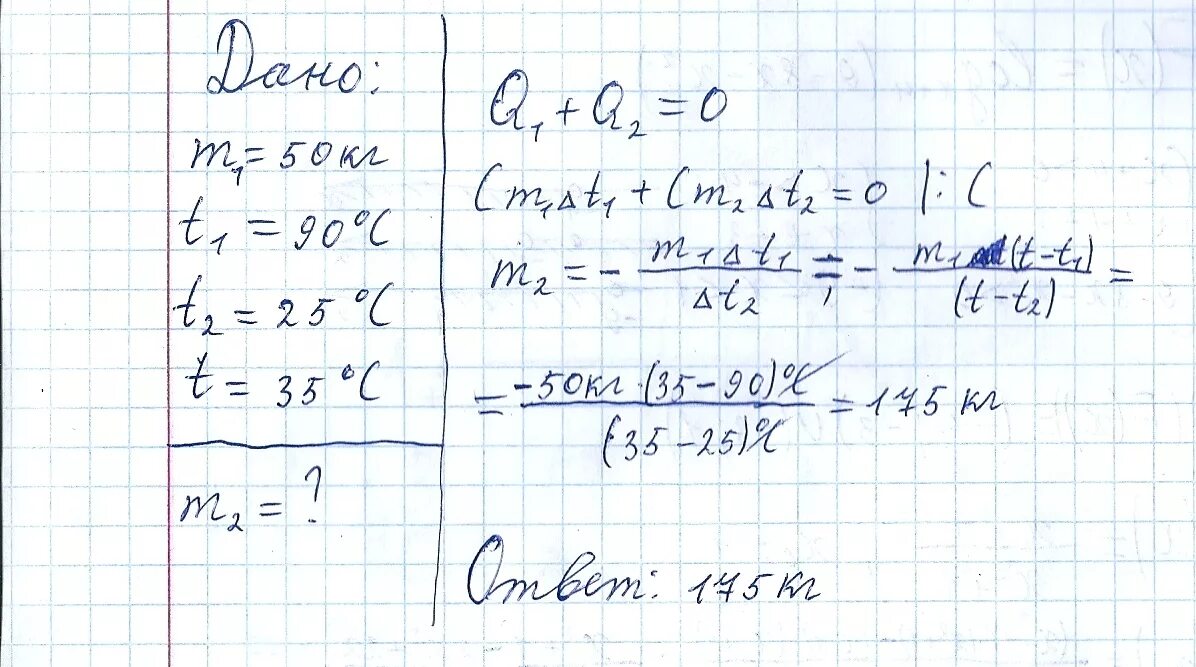 Дано:
m₁ = 50 кг
t₁ = 90°C
t₂ = 25°C
t = 35°C
m₂ = ?
Q₁ + Q₂ = 0
Cm₁Δt₁ + Cm₂Δt₂ = 0 |: C
m₂ = - m₁Δt₁ / Δt₂ = - m₁(t - t₁) / (t - t₂) =
= -50кг·(35-90)°C / (35-25)°C = 175 кг
Ответ: 175 кг